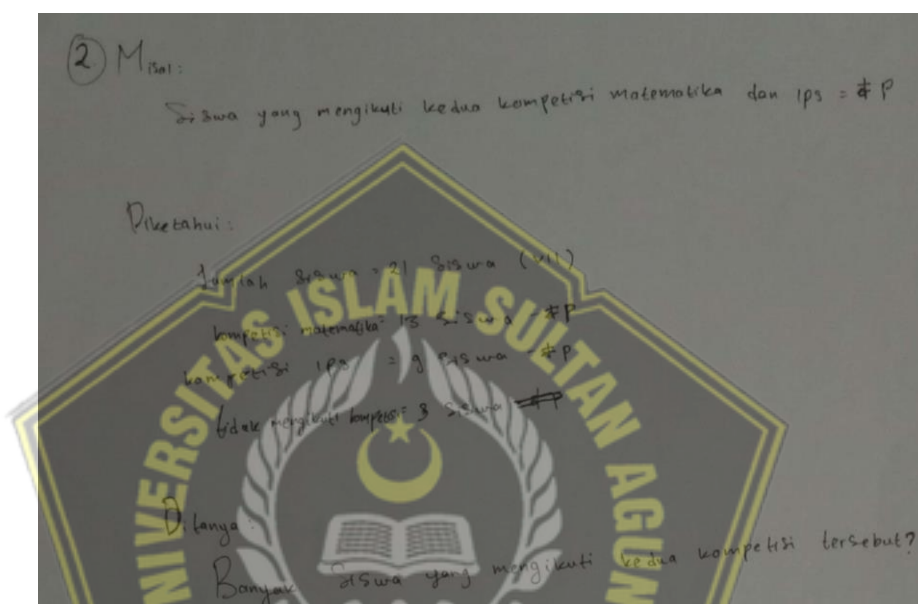 2 Misal:
Siswa yang mengikuti kedua kompetisi matematika dan IPS = P
Diketahui:
Jumlah siswa = 21 siswa (VII)
kompetisi matematika = 13 siswa - P
kompetisi IPS = 9 siswa - P
tidak mengikuti kompetisi = 3 siswa
Ditanya:
Banyak siswa yang mengikuti kedua kompetisi tersebut?
UNIVERSITAS ISLAM SULTAN AGUN